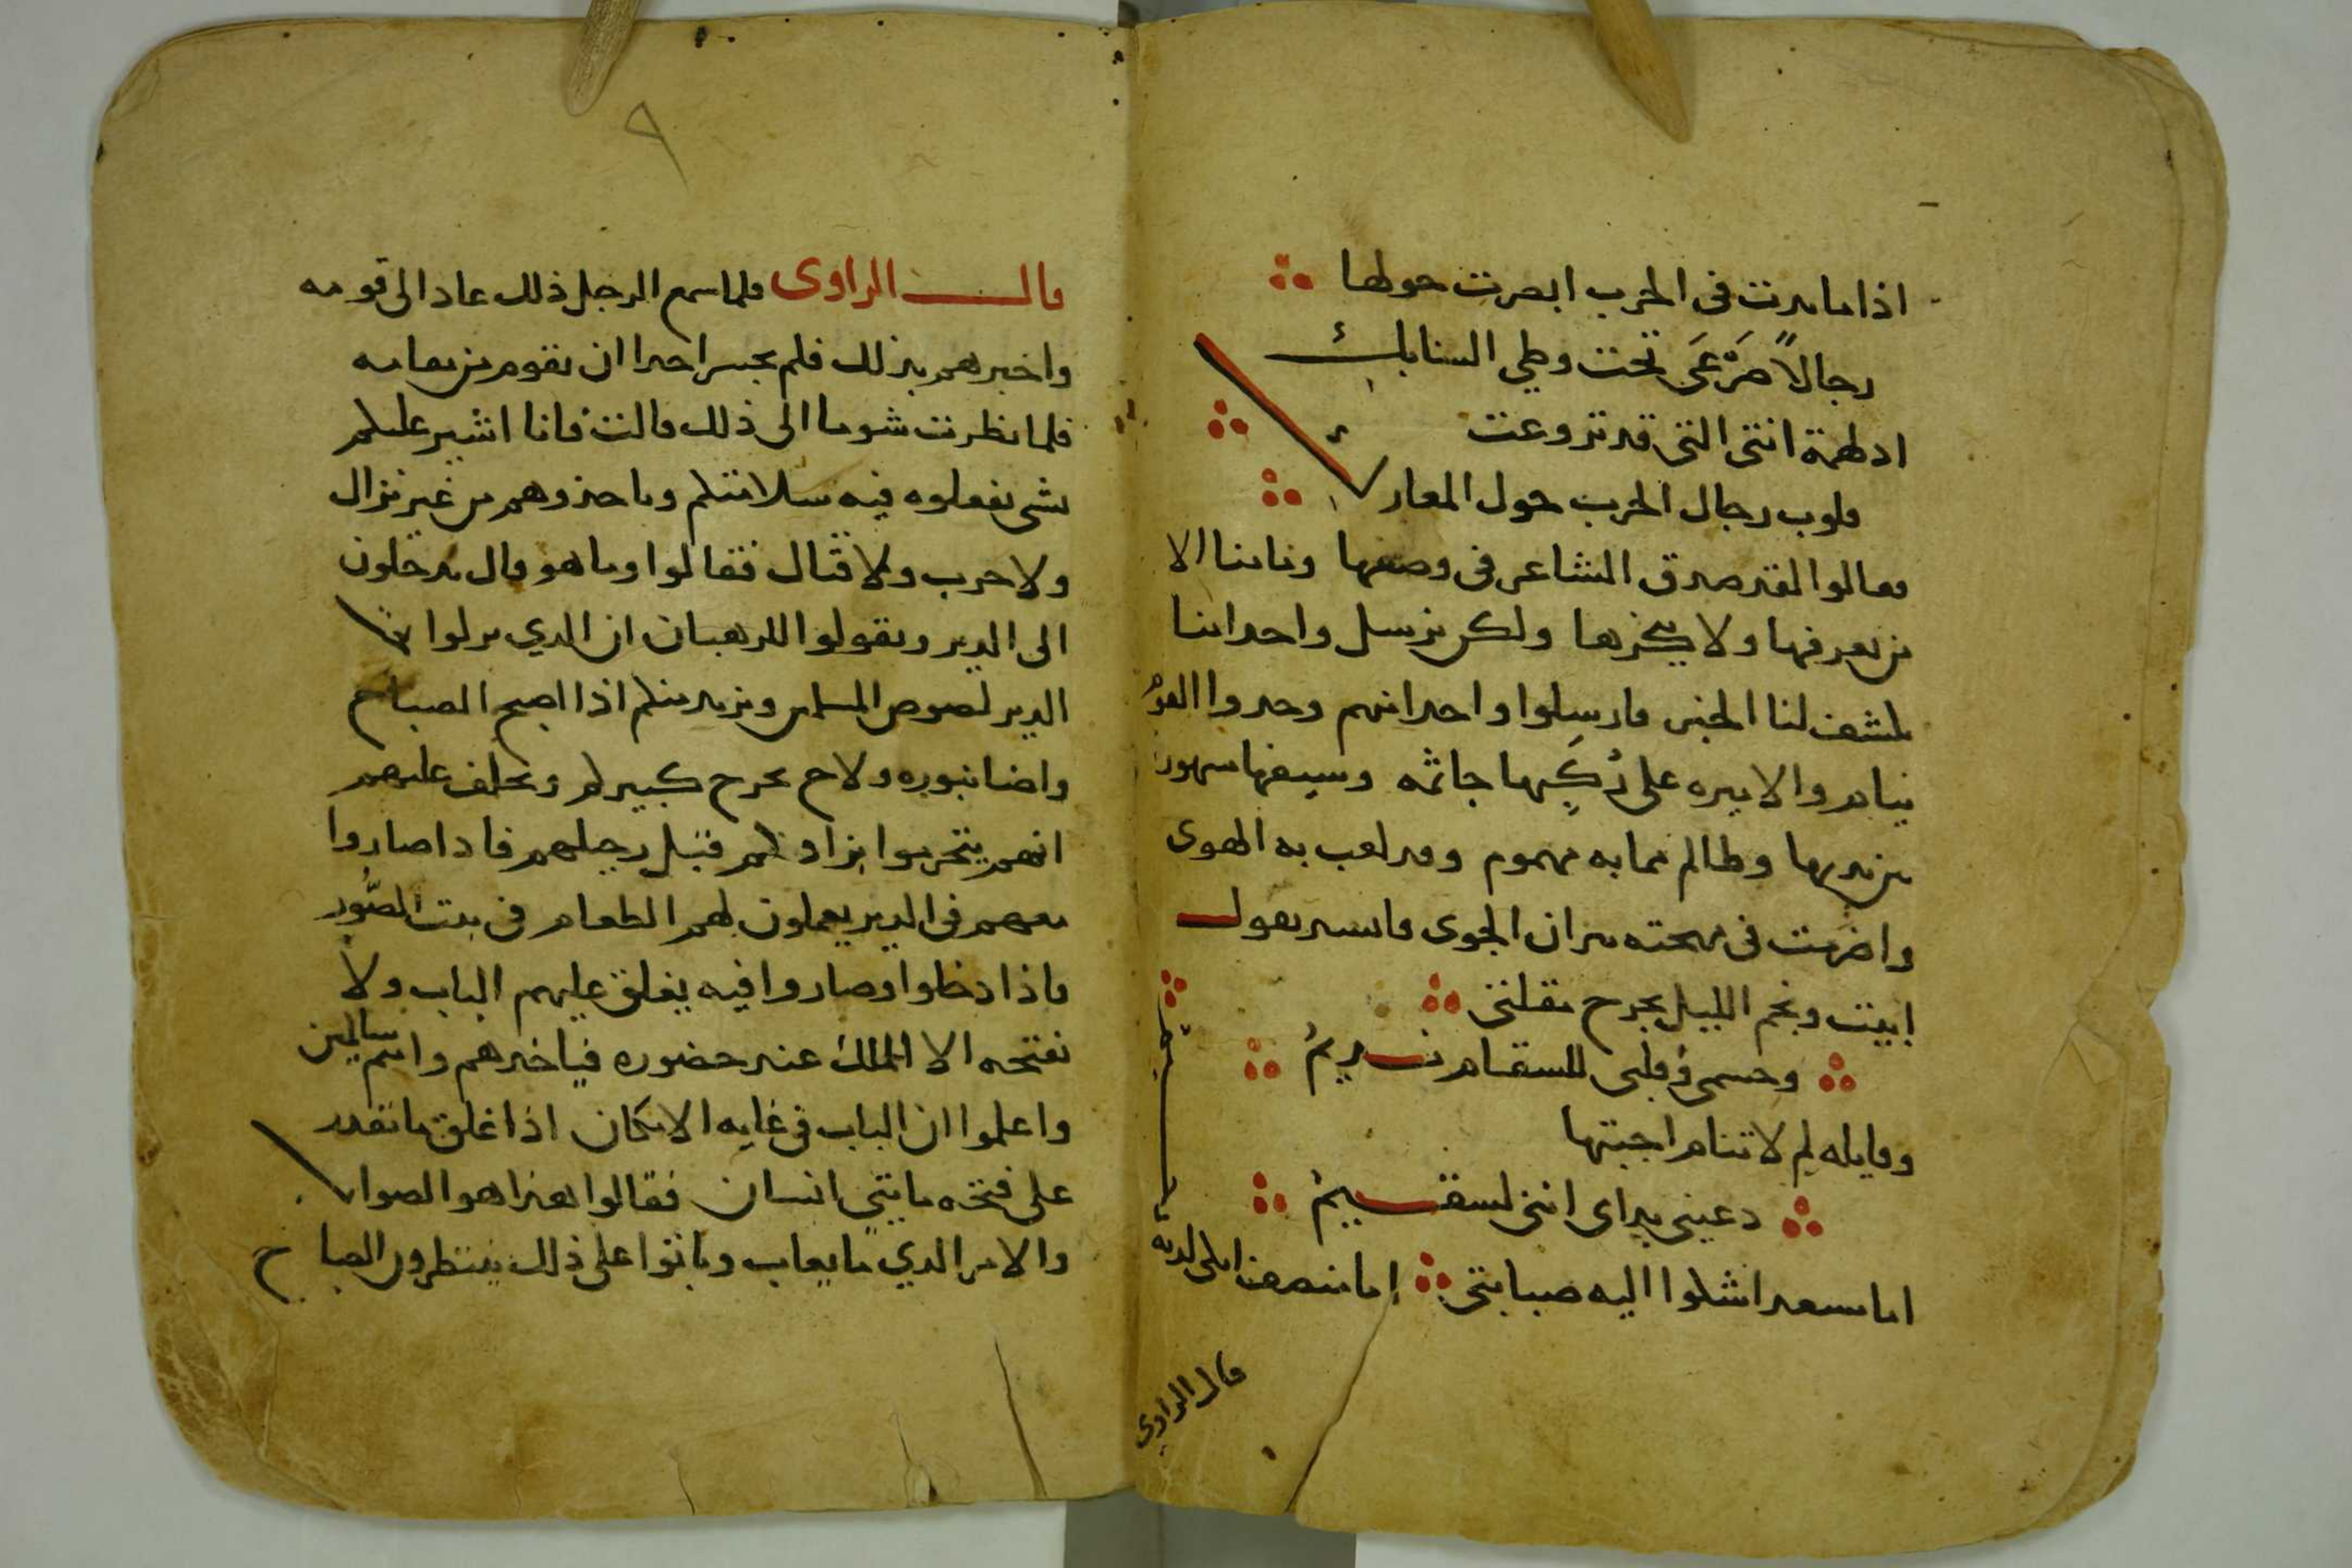 اذا ما بدت في الحرب ابصرت حولها
رجالاً صَرْعَى تحت وطي السنابك
ادلهمة انتى التي قد تزوعت
قلوب رجال الحرب حول المعارك
فقالوا لقد صدق الشاعر في وصفها وما منا الا
من يعرفها ولا ينكرها ولكن نرسل واحد امنا
يكشف لنا الخبر فارسلوا واحد امنهم وجدوا القوم
نيام والاميره على رُكَبِها جاثمه وسيفها مشهور
من يديها وظالم مما به مهموم وقد لعب به الهوى
واضرمت في مهجته نيران الجوى فانشد يقول
ابيت ونجم الليل يجرح مقلتي
وجسمي وقلبي للسقام نديمُ
وقايله لم لا تنام اجبتها
دعيني براى انني لسقيمُ
اما مسعد اشكوا اليه صبابتي اما منصف املى لديه
قال الراوي
٩
قال الراوى فلما سمع الرجل ذلك عاد الى قومه
واخبرهم بذلك فلم يجسر احدا ان يقوم من مقامه
فلما نظرت شوما الى ذلك قالت فانا اشير عليكم
بشي تفعلوه فيه سلامتكم وتاخذوهم من غير نزال
ولا حرب ولا قتال فقالوا وما هو قال تدخلون
الى الدير وتقولوا للرهبان ان الذي نزلوا في
الدير لصوص المسلمين ونريد منكم اذا اصبح الصباح
واضا بنوره ولاح يخرج كبيركم ويحلف عليهم
انهم يتحرموا بزادكم قبل رحيلهم فاذا صاروا
معهم في الدير يعملون لهم الطعام في بيت الصُّور
فاذا دخلوا وصاروا فيه يغلق عليهم الباب ولا
نفتحه الا الملك عند حضوره فياخدهم وانتم سالمين
واعلموا ان الباب في غايه الامكان اذا غلق ما تقدر
على فتحه مايتي انسان فقالوا هذا هو الصواب
والامر الذي ما يعاب وباتوا على ذلك ينتظرون الصباح